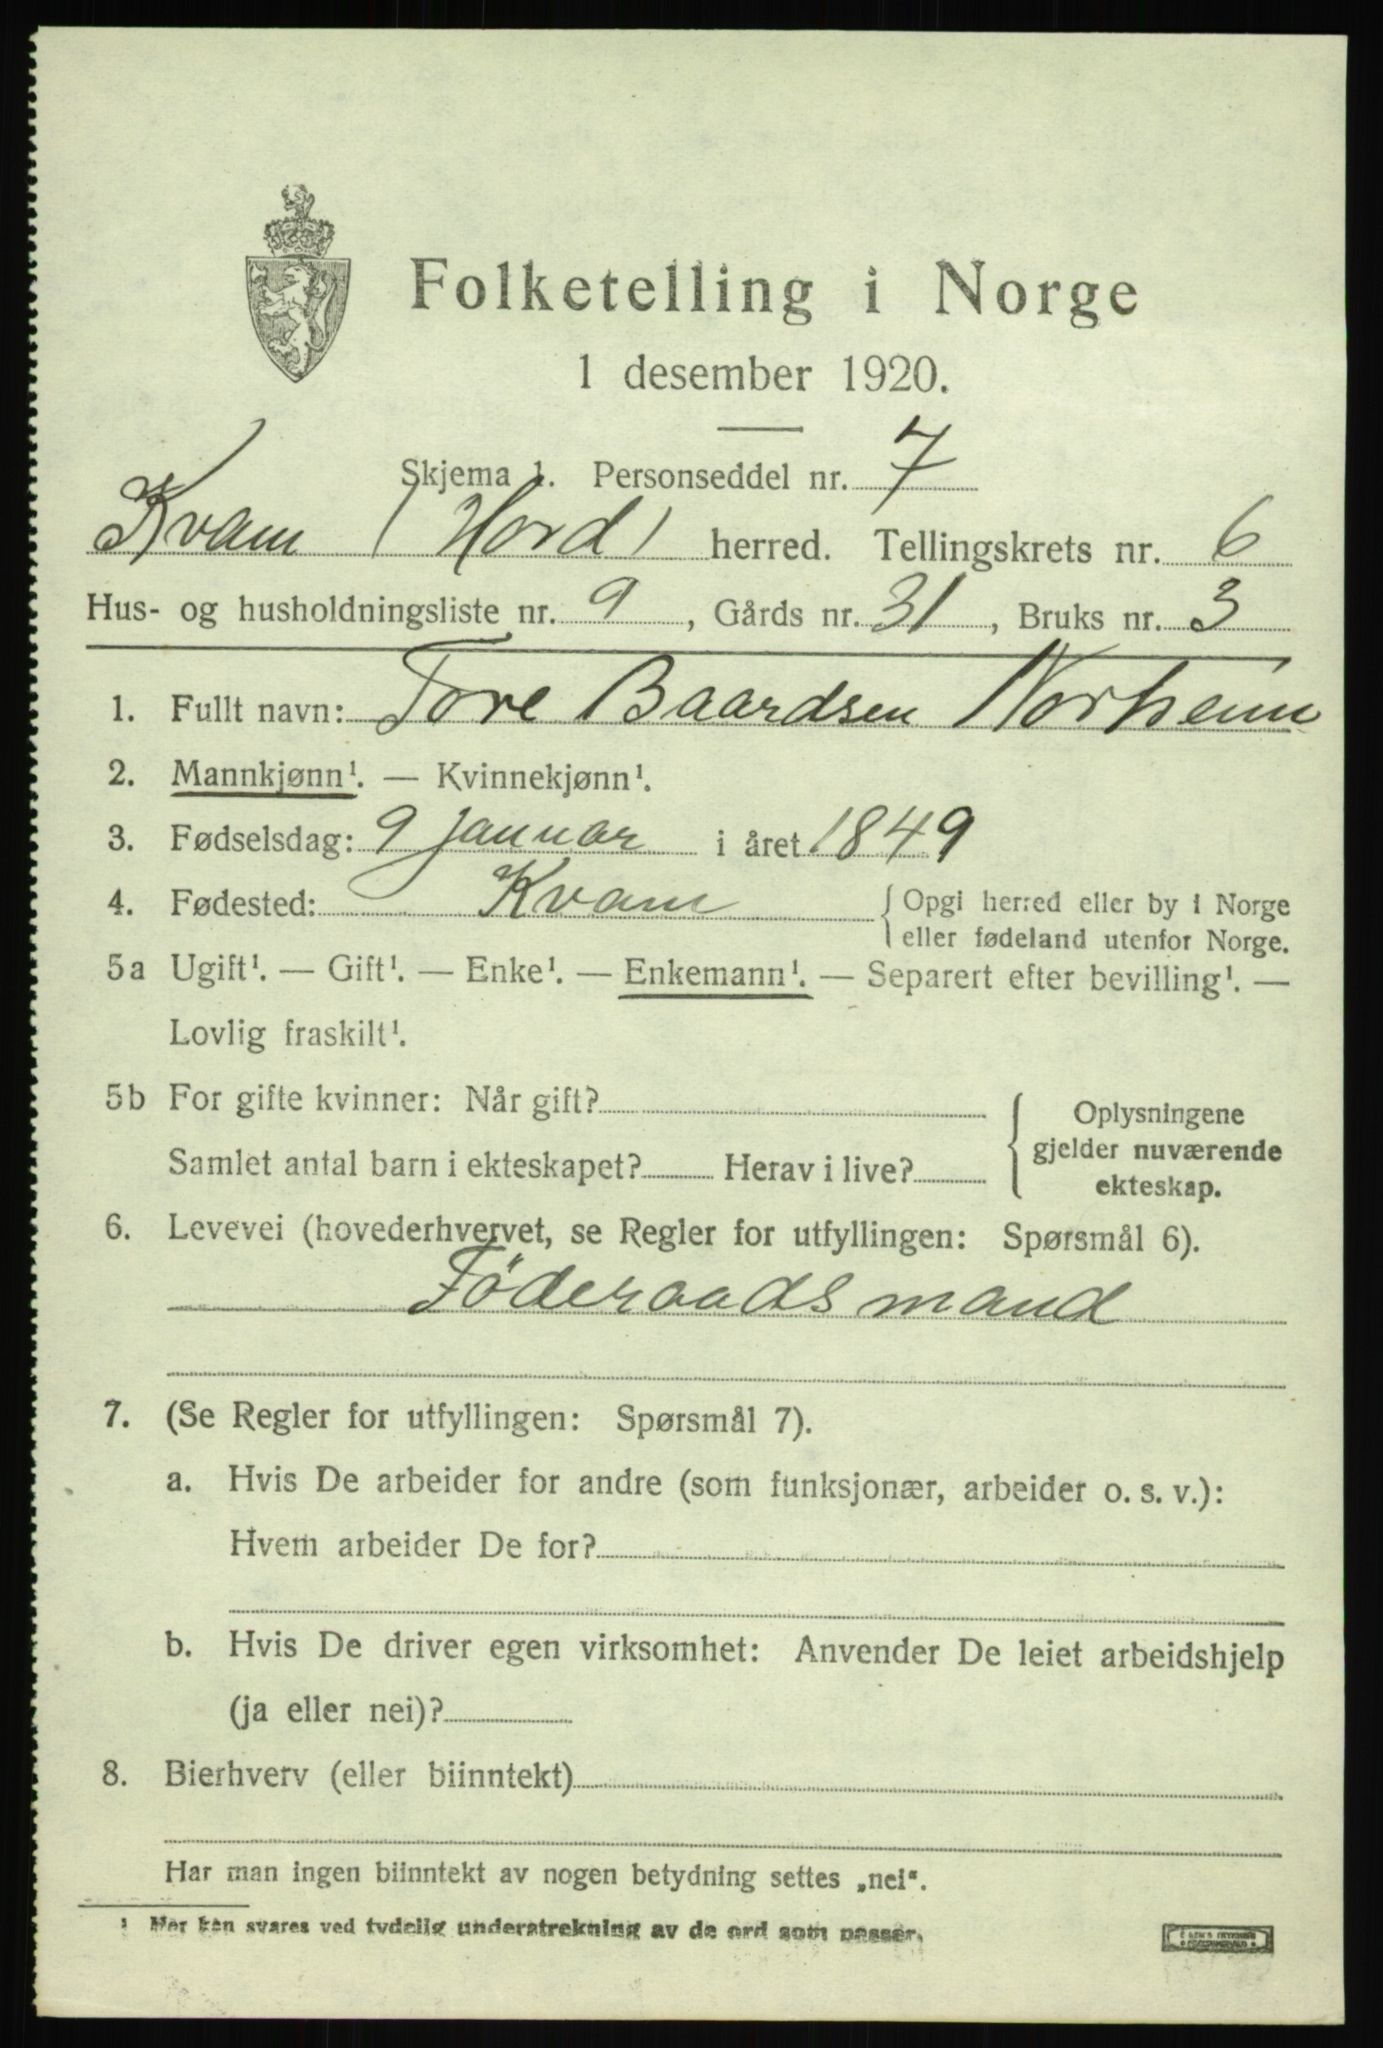 Folketelling i Norge
1 desember 1920.
Skjema 1. Personseddel nr. 7
Kvam (Hord) herred. Tellingskrets nr. 6
Hus- og husholdningsliste nr. 9, Gårds nr. 31, Bruks nr. 3
1. Fullt navn: Tore Baardsen Norheim
2. Mannkjønn¹. — Kvinnekjønn¹.
3. Fødselsdag: 9 Januar i året 1849
4. Fødested: Kvam { Opgi herred eller by i Norge
eller fødeland utenfor Norge.
5a Ugift¹. — Gift¹. — Enke¹. — Enkemann¹. — Separert efter bevilling¹. —
Lovlig fraskilt¹.
5b For gifte kvinner: Når gift?
Samlet antal barn i ekteskapet? Herav i live?
{ Oplysningene
gjelder nuværende
ekteskap.
6. Levevei (hovederhvervet, se Regler for utfyllingen: Spørsmål 6).
Föderaadsmand
7. (Se Regler for utfyllingen: Spørsmål 7).
a. Hvis De arbeider for andre (som funksjonær, arbeider o. s. v.):
Hvem arbeider De for?
b. Hvis De driver egen virksomhet: Anvender De leiet arbeidshjelp
(ja eller nei)?
8. Bierhverv (eller biinntekt)
Har man ingen biinntekt av nogen betydning settes „nei“.
¹ Her kan svares ved tydelig understrekning av de ord som passer.